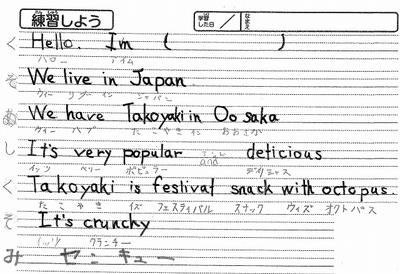 練習しよう 学習した日 / なまえ
く Hello. Im ( )
ハロー アイム
そ We live in Japan
ウィー リブー イン ジャパン
あ We have Takoyaki in Oosaka
ウィー ハブ たこやき イン おおさか
し It's very popular and deticious
イッツ ベリー ポピュラー アンド デリシャス
く Takoyaki is festival snack with octopus.
たこやき イズ フェスティバル スナック ウィズ オクトパス
そ It's crunchy
イッツ クランチー
み センキュー